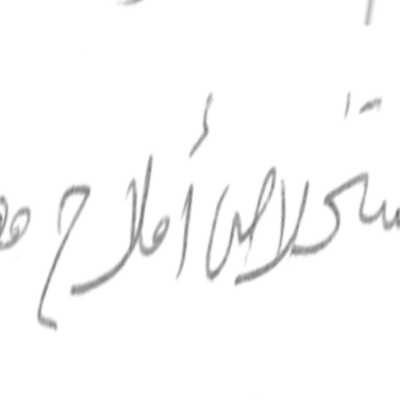 ستخلاص أملاح